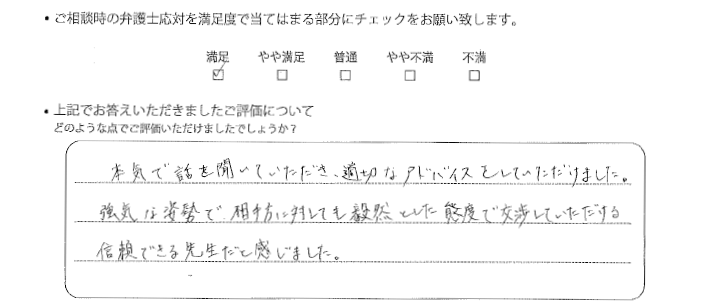 ・ご相談時の弁護士応対を満足度で当てはまる部分にチェックをお願い致します。
満足 やや満足 普通 やや不満 不満
☑ □ □ □ □
・上記でお答えいただきましたご評価について
どのような点でご評価いただけましたでしょうか？
本気で話を聞いていただき、適切なアドバイスをしていただけました。
強気な姿勢で相手方に対しても毅然とした態度で交渉していただける
信頼できる先生だと感じました。